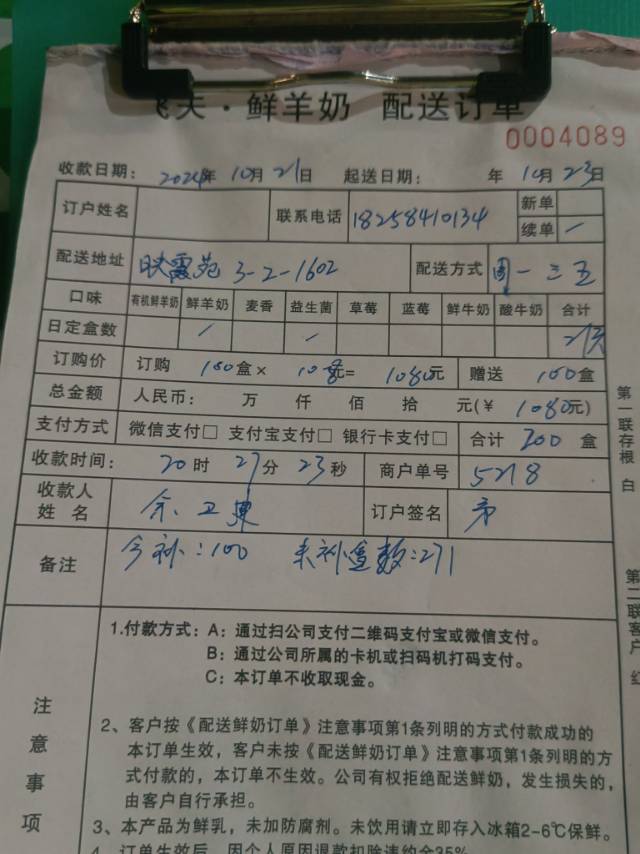 飞天·鲜羊奶 配送订单
0004089
收款日期: 2024年 10月 21日 起送日期: 年 10月 23日
订户姓名 联系电话 18258410134 新单
续单 /
配送地址 映霞苑 3-2-1602 配送方式 周一三五
口味 有机鲜羊奶 鲜羊奶 麦香 益生菌 草莓 蓝莓 鲜牛奶 酸牛奶 合计
日定盒数 / /
订购价 订购 100盒× 元= 1080元 赠送 100盒
总金额 人民币: 万 仟 佰 拾 元(¥ 1080元)
支付方式 微信支付□ 支付宝支付□ 银行卡支付□ 合计 200 盒
收款时间: 20时 27分 23秒 商户单号 5218
收款人
姓 名 余卫 订户签名
备注 今补:100 未补盒数:271
第一联存根 白
第二联客户 红
注意事项
1.付款方式: A: 通过扫公司支付二维码支付宝或微信支付。
B: 通过公司所属的卡机或扫码机打码支付。
C: 本订单不收取现金。
2、客户按《配送鲜奶订单》注意事项第1条列明的方式付款成功的
本订单生效，客户未按《配送鲜奶订单》注意事项第1条列明的方
式付款的，本订单不生效。公司有权拒绝配送鲜奶，发生损失的，
由客户自行承担。
3、本产品为鲜乳，未加防腐剂。未饮用请立即存入冰箱2-6℃保鲜。
4、订单生效后，因个人原因退款扣除违约金35%